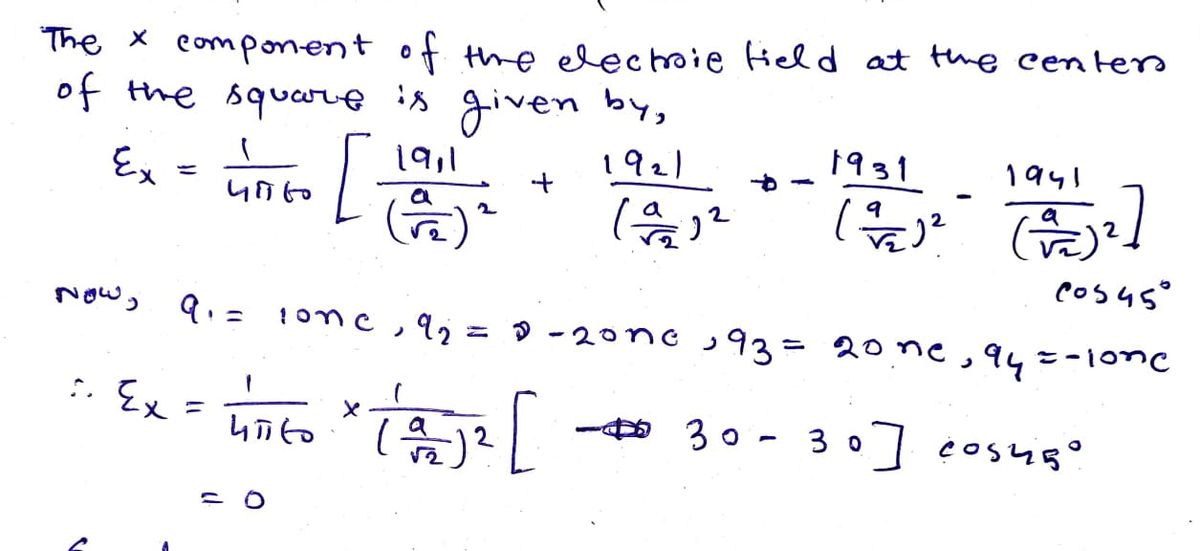 The x component of the electric field at the center
of the square is given by,
Ex = 1/4πε0 [ |q1|/(a/√2)^2 + |q2|/(a/√2)^2 - |q3|/(a/√2)^2 - |q4|/(a/√2)^2 ]
cos45°
Now, q1 = 10nc, q2 = -20nc, q3 = 20nc, q4 = -10nc
∴ Ex = 1/4πε0 × 1/(a/√2)^2 [ 30 - 30 ] cos45°
= 0